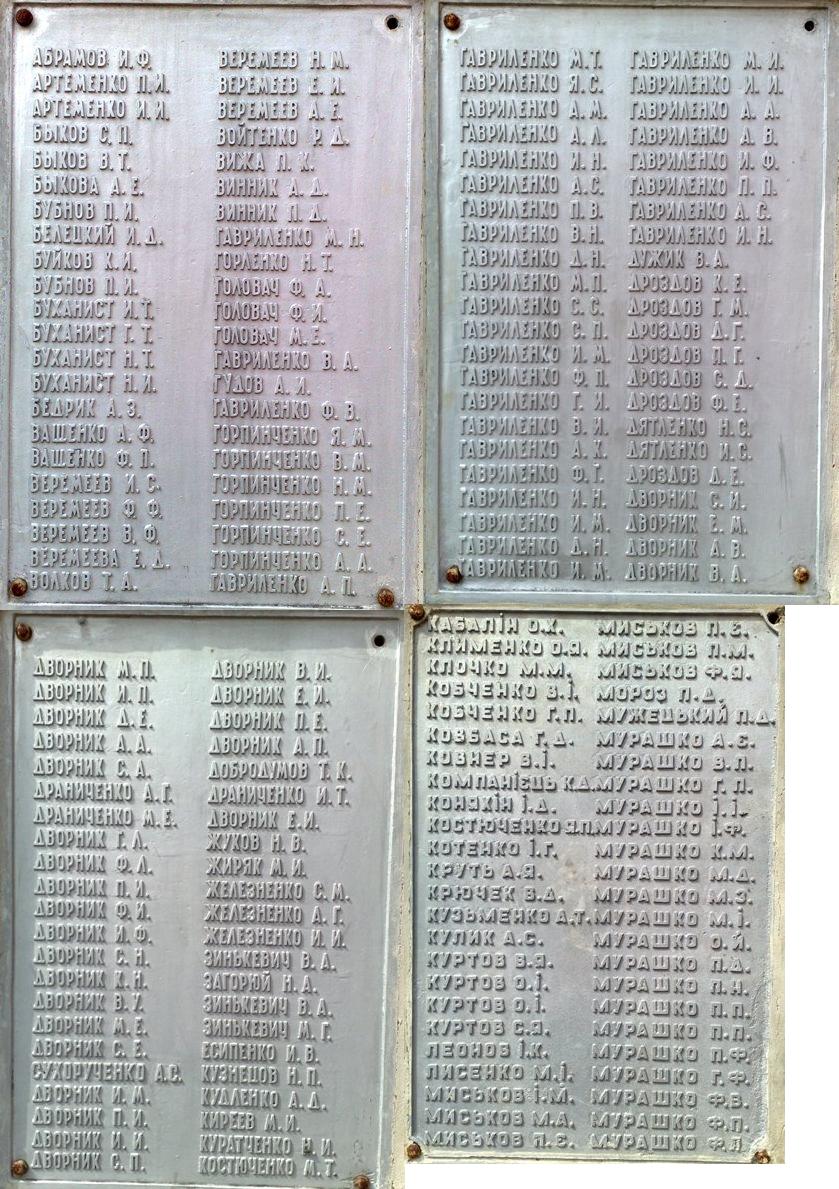 АБРАМОВ И.Ф.
АРТЕМЕНКО П.И.
АРТЕМЕНКО И.И.
БЫКОВ С.П.
БЫКОВ В.Т.
БЫКОВА А.Е.
БУБНОВ П.И.
БЕЛЕЦКИЙ И.Д.
БУЙКОВ К.И.
БУБНОВ П.И.
БУХАНИСТ И.Т.
БУХАНИСТ Г.Т.
БУХАНИСТ Н.Т.
БУХАНИСТ Н.И.
БЕДРИК А.З.
ВАЩЕНКО А.Ф.
ВАЩЕНКО Ф.П.
ВЕРЕМЕЕВ И.С.
ВЕРЕМЕЕВ Ф.Ф.
ВЕРЕМЕЕВ В.Ф.
ВЕРЕМЕЕВА Е.Д.
ВОЛКОВ Т.А.
ВЕРЕМЕЕВ Н.М.
ВЕРЕМЕЕВ Е.И.
ВЕРЕМЕЕВ А.Е.
ВОЙТЕНКО Р.Д.
ВИЖА П.К.
ВИННИК А.Д.
ВИННИК П.Д.
ГАВРИЛЕНКО М.Н.
ГОРЛЕНКО Н.Т.
ГОЛОВАЧ Ф.А.
ГОЛОВАЧ Ф.И.
ГОЛОВАЧ М.Е.
ГАВРИЛЕНКО В.А.
ГУДОВ А.И.
ГАВРИЛЕНКО Ф.В.
ГОРПИНЧЕНКО Я.М.
ГОРПИНЧЕНКО В.М.
ГОРПИНЧЕНКО Н.М.
ГОРПИНЧЕНКО П.Е.
ГОРПИНЧЕНКО С.Е.
ГОРПИНЧЕНКО А.А.
ГАВРИЛЕНКО А.П.
ГАВРИЛЕНКО М.Т.
ГАВРИЛЕНКО Я.С.
ГАВРИЛЕНКО А.М.
ГАВРИЛЕНКО А.Л.
ГАВРИЛЕНКО И.Н.
ГАВРИЛЕНКО А.С.
ГАВРИЛЕНКО П.В.
ГАВРИЛЕНКО В.Н.
ГАВРИЛЕНКО Д.Н.
ГАВРИЛЕНКО М.П.
ГАВРИЛЕНКО С.С.
ГАВРИЛЕНКО С.П.
ГАВРИЛЕНКО И.М.
ГАВРИЛЕНКО Ф.П.
ГАВРИЛЕНКО Г.И.
ГАВРИЛЕНКО В.И.
ГАВРИЛЕНКО А.К.
ГАВРИЛЕНКО Ф.Г.
ГАВРИЛЕНКО И.Н.
ГАВРИЛЕНКО И.М.
ГАВРИЛЕНКО Д.Н.
ГАВРИЛЕНКО И.М.
ГАВРИЛЕНКО М.И.
ГАВРИЛЕНКО И.И.
ГАВРИЛЕНКО А.А.
ГАВРИЛЕНКО А.В.
ГАВРИЛЕНКО И.Ф.
ГАВРИЛЕНКО П.П.
ГАВРИЛЕНКО А.С.
ГАВРИЛЕНКО И.Н.
ДУЖИК В.А.
ДРОЗДОВ К.Е.
ДРОЗДОВ Г.М.
ДРОЗДОВ Д.Г.
ДРОЗДОВ П.Г.
ДРОЗДОВ С.Д.
ДРОЗДОВ Ф.Е.
ДЯТЛЕНКО Н.С.
ДЯТЛЕНКО И.С.
ДРОЗДОВ Д.Е.
ДВОРНИК С.И.
ДВОРНИК Е.М.
ДВОРНИК А.В.
ДВОРНИК В.А.
ДВОРНИК М.П.
ДВОРНИК И.П.
ДВОРНИК Д.Е.
ДВОРНИК А.А.
ДВОРНИК С.А.
ДРАНИЧЕНКО А.Г.
ДРАНИЧЕНКО М.Е.
ДВОРНИК Г.Л.
ДВОРНИК Ф.Л.
ДВОРНИК П.И.
ДВОРНИК Ф.И.
ДВОРНИК И.Ф.
ДВОРНИК С.Н.
ДВОРНИК К.Н.
ДВОРНИК В.У.
ДВОРНИК М.Е.
ДВОРНИК С.Е.
СУХОРУЧЕНКО А.С.
ДВОРНИК И.М.
ДВОРНИК П.И.
ДВОРНИК И.И.
ДВОРНИК С.П.
ДВОРНИК В.И.
ДВОРНИК Е.И.
ДВОРНИК П.Е.
ДВОРНИК А.П.
ДОБРОДУМОВ Т.К.
ДРАНИЧЕНКО И.Т.
ДВОРНИК Е.И.
ЖУКОВ Н.В.
ЖИРЯК М.И.
ЖЕЛЕЗНЕНКО С.М.
ЖЕЛЕЗНЕНКО А.Г.
ЖЕЛЕЗНЕНКО И.И.
ЗИНЬКЕВИЧ В.А.
ЗАГОРЮЙ Н.А.
ЗИНЬКЕВИЧ В.А.
ЗИНЬКЕВИЧ М.Г.
ЕСИПЕНКО И.В.
КУЗНЕЦОВ Н.П.
КУДЛЕНКО А.Д.
КИРЕЕВ М.И.
КУРАТЧЕНКО Н.И.
КОСТЮЧЕНКО М.Т.
КАБАЛІН О.Х.
КЛИМЕНКО О.Я.
КЛОЧКО М.М.
КОБЧЕНКО В.І.
КОБЧЕНКО Г.П.
КОВБАСА Г.Д.
КОЗНЕР В.І.
КОМПАНІЄЦЬ К.Д.
КОНЯХІН І.Д.
КОСТЮЧЕНКО Я.П.
КОТЕНКО І.Г.
КРУТЬ А.Я.
КРЮЧЕК В.Д.
КУЗЬМЕНКО А.Т.
КУЛИК А.С.
КУРТОВ В.Я.
КУРТОВ О.І.
КУРТОВ О.І.
КУРТОВ С.Я.
ЛЕОНОВ І.К.
ЛИСЕНКО М.І.
МИСЬКОВ І.М.
МИСЬКОВ М.А.
МИСЬКОВ П.Є.
МИСЬКОВ П.Є.
МИСЬКОВ П.М.
МИСЬКОВ Ф.Я.
МОРОЗ П.Д.
МУЖЕЦЬКИЙ П.Д.
МУРАШКО А.Є.
МУРАШКО В.П.
МУРАШКО Г.П.
МУРАШКО І.І.
МУРАШКО І.Ф.
МУРАШКО К.М.
МУРАШКО М.Д.
МУРАШКО М.З.
МУРАШКО М.І.
МУРАШКО О.Й.
МУРАШКО П.Д.
МУРАШКО П.Н.
МУРАШКО П.П.
МУРАШКО П.П.
МУРАШКО П.Ф.
МУРАШКО Г.Ф.
МУРАШКО Ф.В.
МУРАШКО Ф.П.
МУРАШКО Ф.Л.